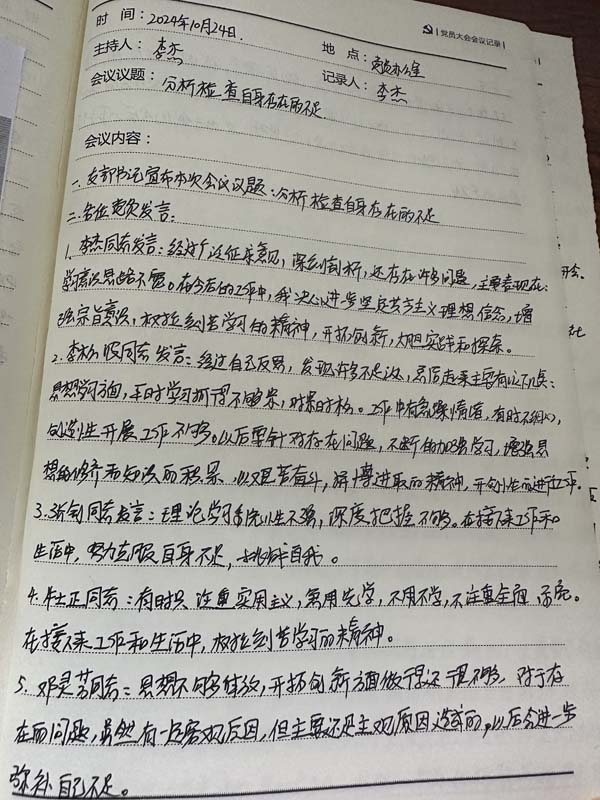 党员大会会议记录
时 间：2024年10月24日. 地 点：党员办公室
主持人：李杰 记录人：李杰
会议议题：分析检查自身存在的不足.
会议内容：
一、支部书记宣布本次会议议题：分析检查自身存在的不足
二、各位党员发言：
1、李杰同志发言：经过广泛征求意见，深刻剖析，还存在许多问题，主要表现在：
学习意识思路不宽。在今后的工作中，我决心进一步坚定共产主义理想信念，增
强宗旨意识，发扬刻苦学习的精神，开拓创新，大胆实践和探索。
2、李松同志发言：经过自己反思，发现许多不足之处，总结起来主要有以下几点：
思想学习方面，平时学习抓得不够紧，时紧时松。工作中有急躁情绪，有时不细心，
创造性开展工作不够。以后要针对存在问题，不断的加强学习，增强思
想的修养和知识的积累，以艰苦奋斗，拼搏进取的精神，开创性的进行工作。
3.张剑同志发言：理论学习系统性不强，深度把握不够。在接下来工作和
生活中，努力克服自身不足，挑战自我。
4.杜正同志：有时只注重实用主义，急用先学，不用不学，不注重全面系统。
在接下来工作和生活中，发扬刻苦学习的精神。
5、邓灵芳同志：思想不够解放，开拓创新方面做得还不够，对于存
在的问题，虽然有一点客观原因，但主要还是主观原因造成的，以后会进一步
弥补自己不足。